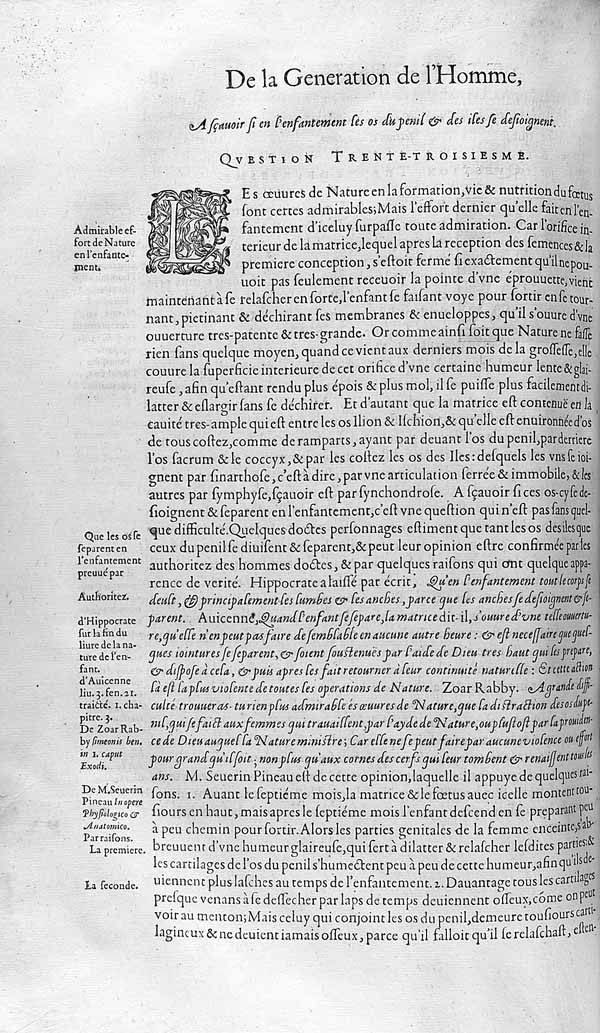 De la Generation de l'Homme,
A sçauoir si en l'enfantement les os du penil & des iles se desioignent.
QVESTION TRENTE-TROISIESME.
LEs œuures de Nature en la formation, vie & nutrition du fœtus
sont certes admirables; Mais l'effort dernier qu'elle fait en l'en-
fantement d'iceluy surpasse toute admiration. Car l'orifice in-
terieur de la matrice, lequel apres la reception des semences & la
premiere conception, s'estoit fermé si exactement qu'il ne pou-
uoit pas seulement receuoir la pointe d'vne éprouuette, vient
maintenant à se relascher en sorte, l'enfant se faisant voye pour sortir en se tour-
nant, pietinant & déchirant ses membranes & enueloppes, qu'il s'ouure d'vne
ouuerture tres-patente & tres-grande. Or comme ainsi soit que Nature ne fasse
rien sans quelque moyen, quand ce vient aux derniers mois de la grossesse, elle
couure la superficie interieure de cet orifice d'vne certaine humeur lente & glai-
reuse, afin qu'estant rendu plus épois & plus mol, il se puisse plus facilement di-
latter & eslargir sans se déchirer. Et d'autant que la matrice est contenuë en la
cauité tres-ample qui est entre les os Ilion & Ischion, & qu'elle est enuironnée d'os
de tous costez, comme de ramparts, ayant par deuant l'os du penil, par derriere
l'os sacrum & le coccyx, & par les costez les os des Iles: desquels les vns se ioi-
gnent par sinarthose, c'est à dire, par vne articulation serrée & immobile, & les
autres par symphyse, sçauoir est par synchondrose. A sçauoir si ces os-cy se de-
sioignent & separent en l'enfantement, c'est vne question qui n'est pas sans quel-
que difficulté. Quelques doctes personnages estiment que tant les os des iles que
ceux du penil se diuisent & separent, & peut leur opinion estre confirmée par les
authoritez des hommes doctes, & par quelques raisons qui ont quelque appa-
rence de verité. Hippocrate a laissé par écrit, Qu'en l'enfantement tout le corps se
deult, & principalement les lumbes & les anches, parce que les anches se desioignent & se-
parent. Auicenne, Quand l'enfant se separe, la matrice dit-il, s'ouure d'vne telle ouuertu-
re, qu'elle n'en peut pas faire de semblable en aucune autre heure: & est necessaire que quel-
ques iointures se separent, & soient soustenuës par l'aide de Dieu tres haut qui les prepare,
& dispose à cela, & puis apres les fait retourner à leur continuité naturelle: Et cette action
là est la plus violente de toutes les operations de Nature. Zoar Rabby. A grande diffi-
culté trouueras-tu rien plus admirable és œuures de Nature, que la distraction des os du pe-
nil, qui se faict aux femmes qui trauaillent, par l'ayde de Nature, ou plustost par la prouiden-
ce de Dieu auquel la Nature ministre; Car elle ne se peut faire par aucune violence ou effort
pour grand qu'il soit; non plus qu'aux cornes des cerfs qui leur tombent & renaissent tous les
ans. M. Seuerin Pineau est de cette opinion, laquelle il appuye de quelques rai-
sons. 1. Auant le septiéme mois, la matrice & le fœtus auec icelle montent tou-
siours en haut, mais apres le septiéme mois l'enfant descend en se preparant peu
à peu chemin pour sortir. Alors les parties genitales de la femme enceinte, s'ab-
breuuent d'vne humeur glaireuse, qui sert à dilatter & relascher lesdites parties: &
les cartilages de l'os du penil s'humectent peu à peu de cette humeur, afin qu'ils de-
uiennent plus lasches au temps de l'enfantement. 2. Dauantage tous les cartilages
presque venans à se dessecher par laps de temps deuiennent osseux, cõme on peut
voir au menton; Mais celuy qui conjoint les os du penil, demeure tousiours carti-
lagineux & ne deuient iamais osseux, parce qu'il falloit qu'il se relaschast, esten-
Admirable ef-
fort de Nature
en l'enfante-
ment.
Que les os se
separent en
l'enfantement
preuué par
Authoritez.
d'Hippocrate
sur la fin du
liure de la na-
ture de l'en-
fant.
d'Auicenne
liu. 3. fen. 21.
traicté. 1. cha-
pitre. 3.
De Zoar Rab-
by simeonis ben.
in 1. caput
Exodi.
De M. Seuerin
Pineau In opere
Physiologico &
Anatomico.
Par raisons.
La premiere.
La seconde.